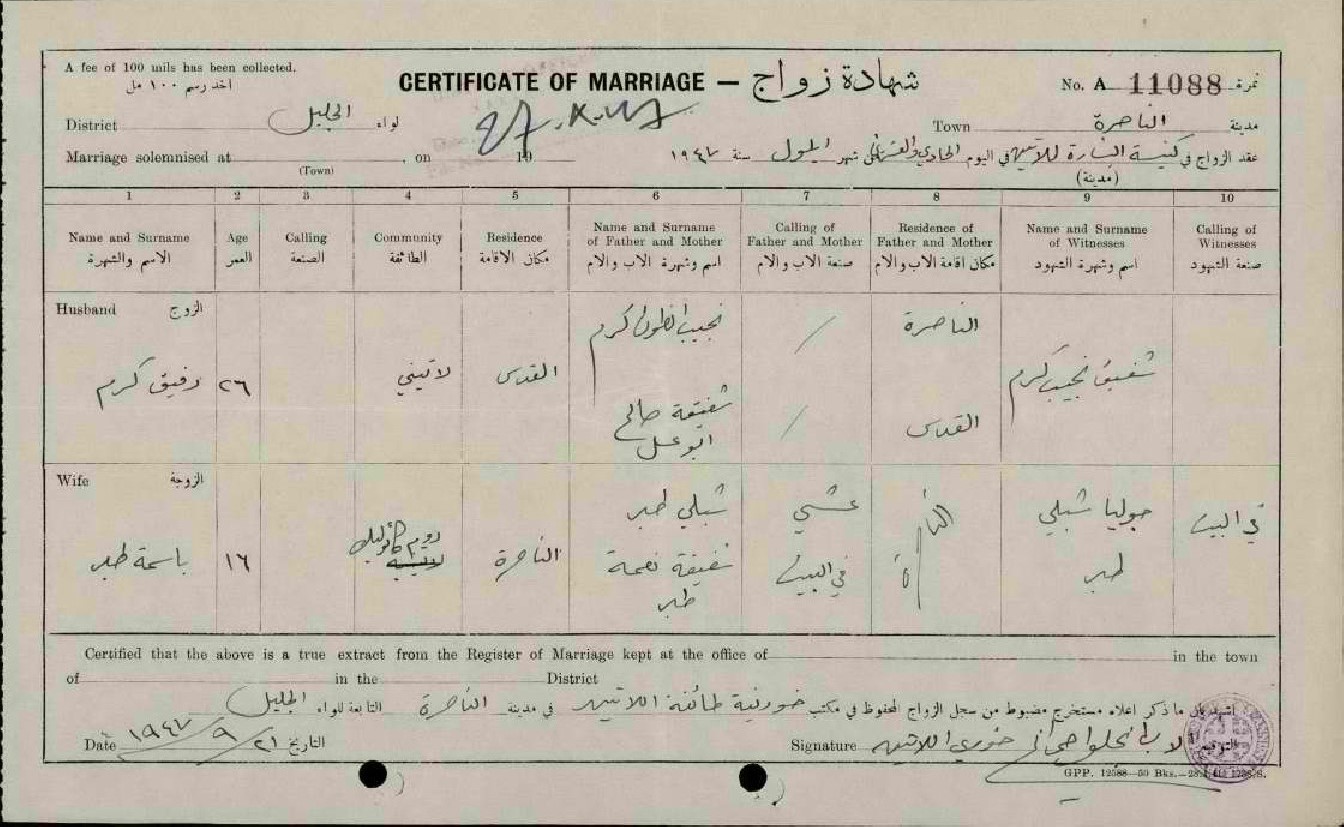 A fee of 100 mils has been collected.
اخذ رسم ١٠٠ مل
CERTIFICATE OF MARRIAGE — شهادة زواج
No. A 11088 نمرة
District الجليل لواء
Town الناصرة مدينة
Marriage solemnised at , on 19
(Town)
عقد الزواج في كنيسة البشارة للاتين في اليوم الحادي والعشرين شهر ايلول سنة ١٩٤٧
(مدينة)
1 2 3 4 5 6 7 8 9 10
Name and Surname
الاسم والشهرة
Age
العمر
Calling
الصنعة
Community
الطائفة
Residence
مكان الاقامة
Name and Surname
of Father and Mother
اسم وشهرة الاب والام
Calling of
Father and Mother
صنعة الاب والام
Residence of
Father and Mother
مكان اقامة الاب والام
Name and Surname
of Witnesses
اسم وشهرة الشهود
Calling of
Witnesses
صنعة الشهود
Husband الزوج
رفيق كرم
٢٦
لاتيني
القدس
نجيب انطون كرم
شفيقة صالح
ابو عسل
الناصرة
القدس
شفيق نجيب كرم
Wife الزوجة
باسمة طبر
١٦
روم كاثوليك
الناصرة
شبلي طبر
شفيقة نعمة
طبر
في البيت
الناصرة
جوليا شبلي
طبر
في البيت
Certified that the above is a true extract from the Register of Marriage kept at the office of in the town
of in the District
اشهد بان ما ذكر اعلاه مستخرج مضبوط من سجل الزواج المحفوظ في مكتب خورنية طائفة اللاتين في مدينة الناصرة التابعة للواء الجليل
Date ١٩٤٧/٩/٢١ التاريخ
Signature خوري اللاتين التوقيع
GPP. 12588—50 Bks.—